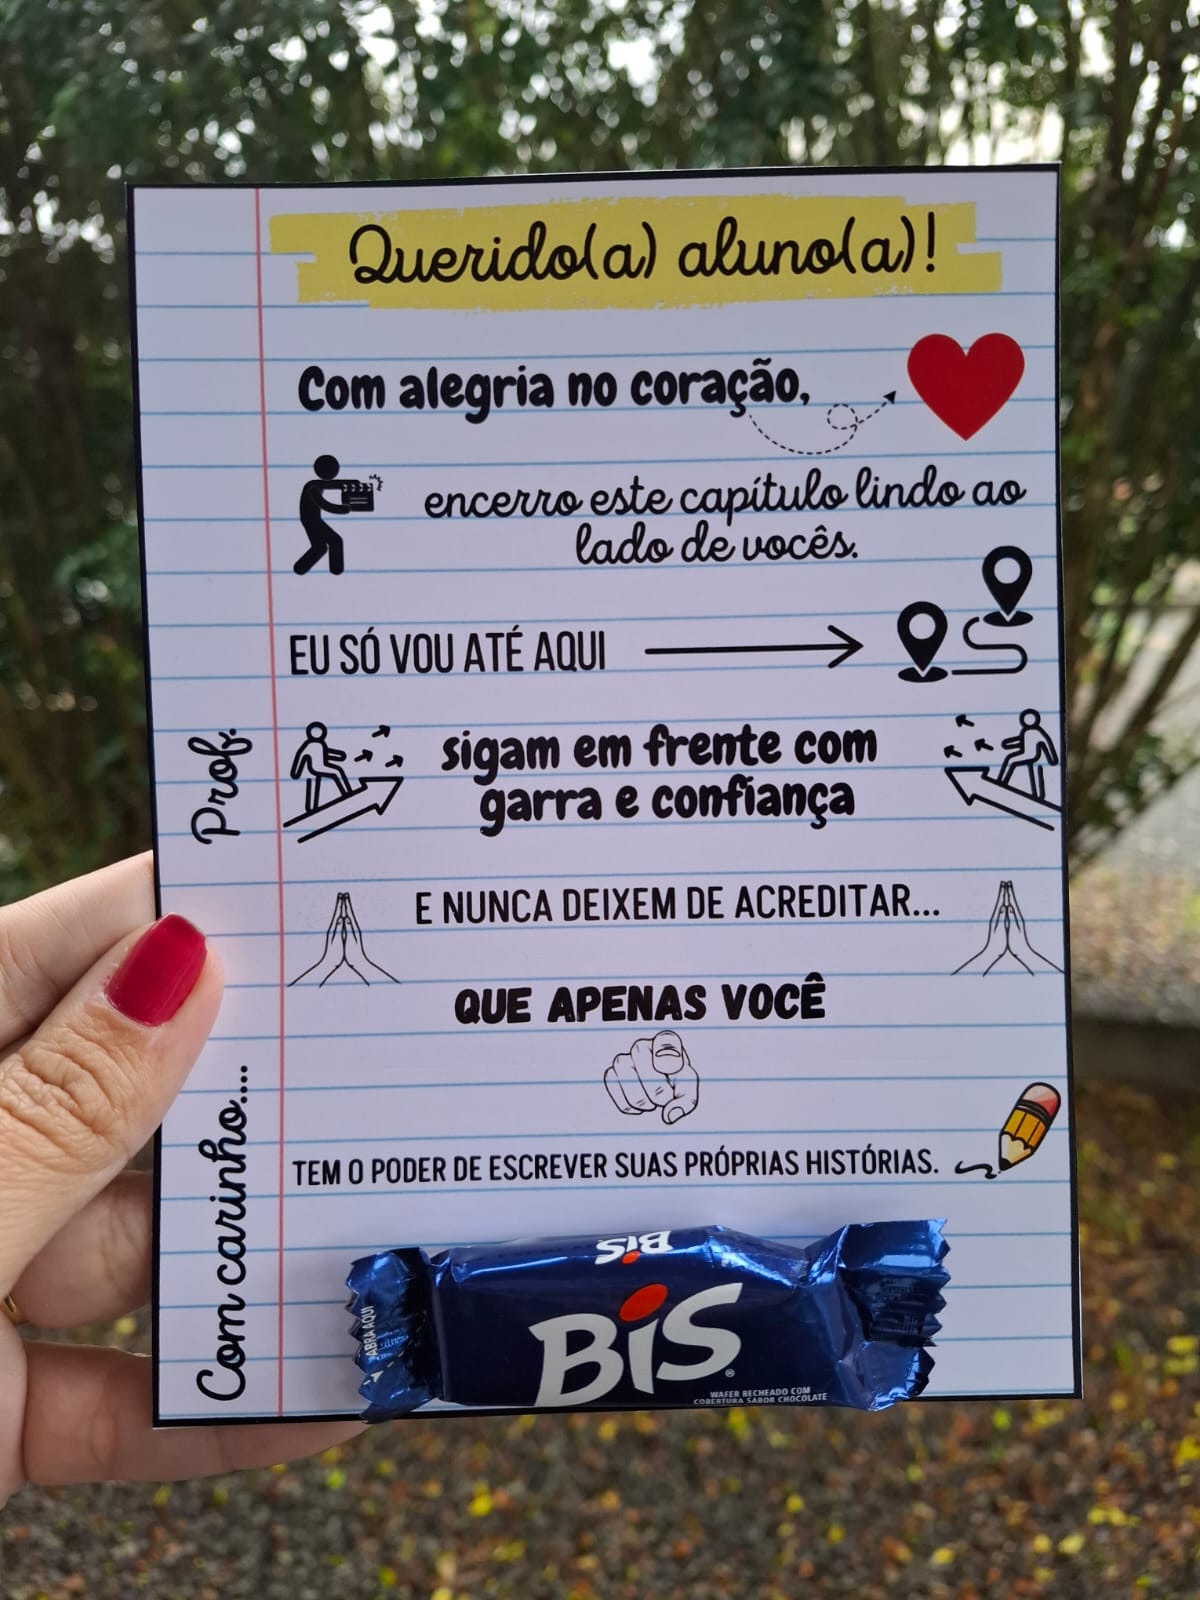 Querido(a) aluno(a)!
Com alegria no coração,
encerro este capítulo lindo ao
lado de vocês.
EU SÓ VOU ATÉ AQUI
sigam em frente com
garra e confiança
E NUNCA DEIXEM DE ACREDITAR...
QUE APENAS VOCÊ
TEM O PODER DE ESCREVER SUAS PRÓPRIAS HISTÓRIAS.
Com carinho.... Prof.
BIS
ABRA AQUI
BIS®
WAFER RECHEADO COM
COBERTURA SABOR CHOCOLATE